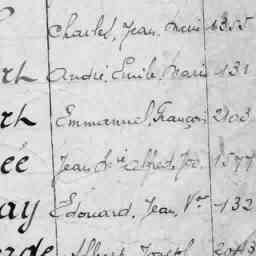 Charles, Jean, Marie 1355
rh André, Emile, Marie 131
rh Emmanuel, François 2103
ée Jean Alfred, 1577
ay Edouard, Jean, Vor 132
erde Albert Joseph 2043